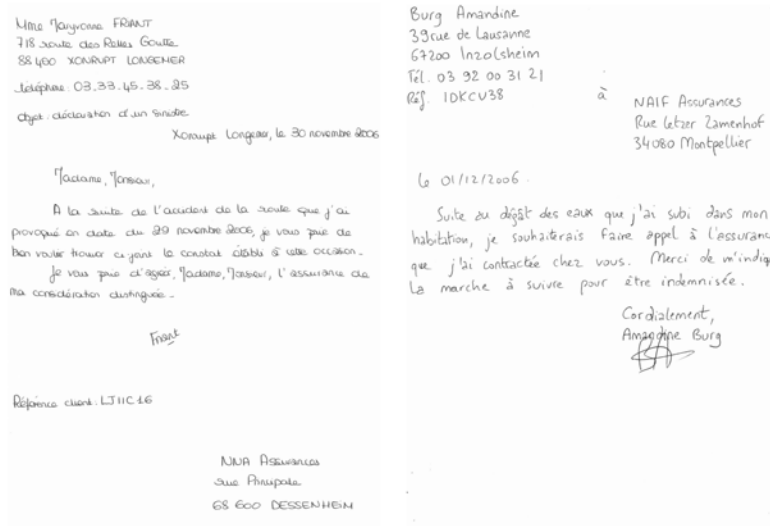 Mme Maryvonne FRIANT
718 route des Relles Goutte
88400 XONRUPT LONGEMER
téléphone: 03.33.45.38.25
objet: déclaration d'un sinistre
Xonrupt Longemer, le 30 novembre 2006
Madame, Monsieur,
A la suite de l'accident de la route que j'ai
provoqué en date du 29 novembre 2006, je vous prie de
bien vouloir trouver ci-joint le constat établi à cette occasion.
Je vous prie d'agréer, Madame, Monsieur, l'assurance de
ma considération distinguée.
Friant
Référence client: LJIIC16
NNA Assurances
rue Principale
68 600 DESSENHEIM
Burg Amandine
39 rue de Lausanne
67200 Inzolsheim
Tél. 03 92 00 31 21
Réf. IDKCV38
à
NAIF Assurances
Rue Zamenhof
34080 Montpellier
le 01/12/2006.
Suite au dégât des eaux que j'ai subi dans mon
habitation, je souhaiterais faire appel à l'assuranc
que j'ai contractée chez vous. Merci de m'indiq
la marche à suivre pour être indemnisée.
Cordialement,
Amandine Burg